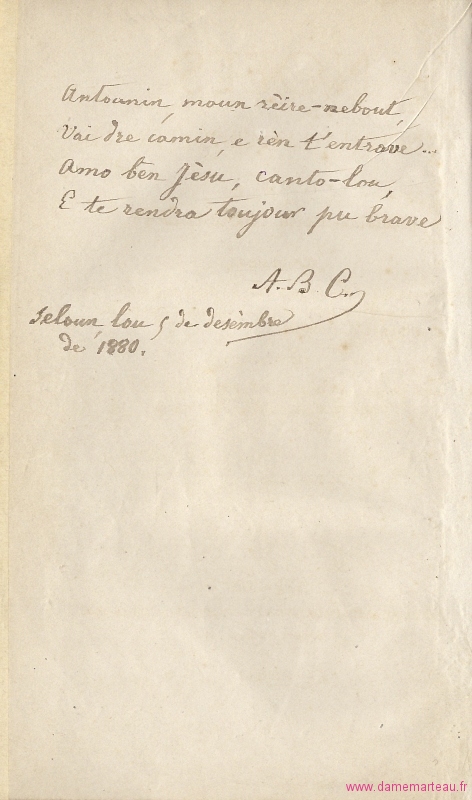 Antounin, moun rèire-nebout,
Vai dre camin, e rèn t'entrave...
Amo ben Jèsu, canto-lou,
E te rendra toujour pu brave
A. B. C.
Seloun, lou 5 de desèmbre
de 1880.
www.damemarteau.fr